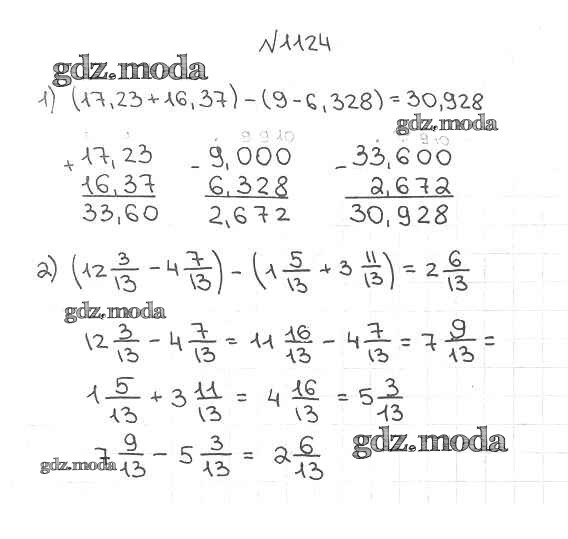 N1124
gdz.moda
1) (17,23+16,37)-(9-6,328)=30,928
gdz.moda
9 9 10 9 10
+ 17,23 - 9,000 - 33,600
16,37 6,328 2,672
33,60 2,672 30,928
2) (12 3/13 - 4 7/13) - (1 5/13 + 3 11/13) = 2 6/13
gdz.moda
12 3/13 - 4 7/13 = 11 16/13 - 4 7/13 = 7 9/13 =
1 5/13 + 3 11/13 = 4 16/13 = 5 3/13
gdz.moda
7 9/13 - 5 3/13 = 2 6/13
gdz.moda